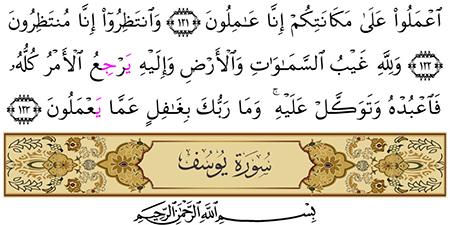 ٱعْمَلُوا۟ عَلَىٰ مَكَانَتِكُمْ إِنَّا عَـٰمِلُونَ ﴿١٢١﴾ وَٱنتَظِرُوٓا۟ إِنَّا مُنتَظِرُونَ
﴿١٢٢﴾ وَلِلَّهِ غَيْبُ ٱلسَّمَـٰوَٰتِ وَٱلْأَرْضِ وَإِلَيْهِ يَرْجِعُ ٱلْأَمْرُ كُلُّهُۥ
فَٱعْبُدْهُ وَتَوَكَّلْ عَلَيْهِ ۚ وَمَا رَبُّكَ بِغَـٰفِلٍ عَمَّا يَعْمَلُونَ ﴿١٢٣﴾
سُورَةُ يُوسُفَ
بِسْمِ ٱللَّهِ ٱلرَّحْمَـٰنِ ٱلرَّحِيمِ